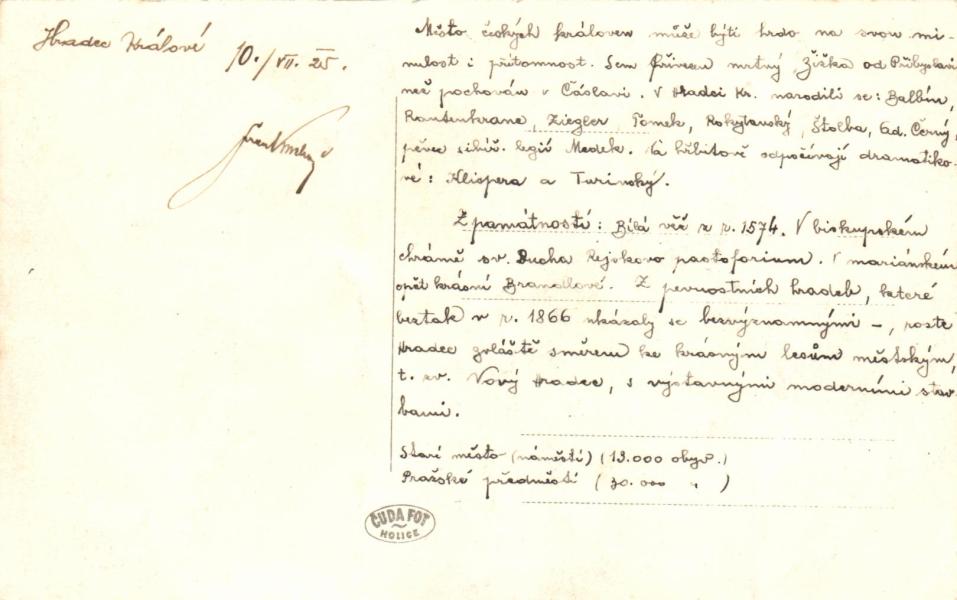 Hradec Králové
10./VII. 25.
Město českých královen může býti hrdo na svou mi-
nulost i přítomnost. Sem přivezen mrtvý Žižka od Přibyslavi
než pochován v Čáslavi. V Hradci Kr. narodili se: Balbín,
Rautenkranc, Ziegler, Pomek, Rokytanský, Štolba, Ed. Černý,
pěvec sibiř. legií Medek. Na hřbitově odpočívají dramatiko-
vé: Klicpera a Turinský.
Z památností: Bílá věž z r. 1574. V biskupském
chrámě sv. Ducha Rejskovo pastoforium. V mariánském
opět krásní Brandlové. Z pevnostních hradeb, které
beztak v r. 1866 ukázaly se bezvýznamnými –, roste
Hradec zvláště směrem ke krásným lesům městským,
t. zv. Nový Hradec, s výstavnými moderními stav-
bami.
Staré město (náměstí) (13.000 obyv.)
Pražské předměstí (30.000 „ )
ČUDA FOT
HOLICE